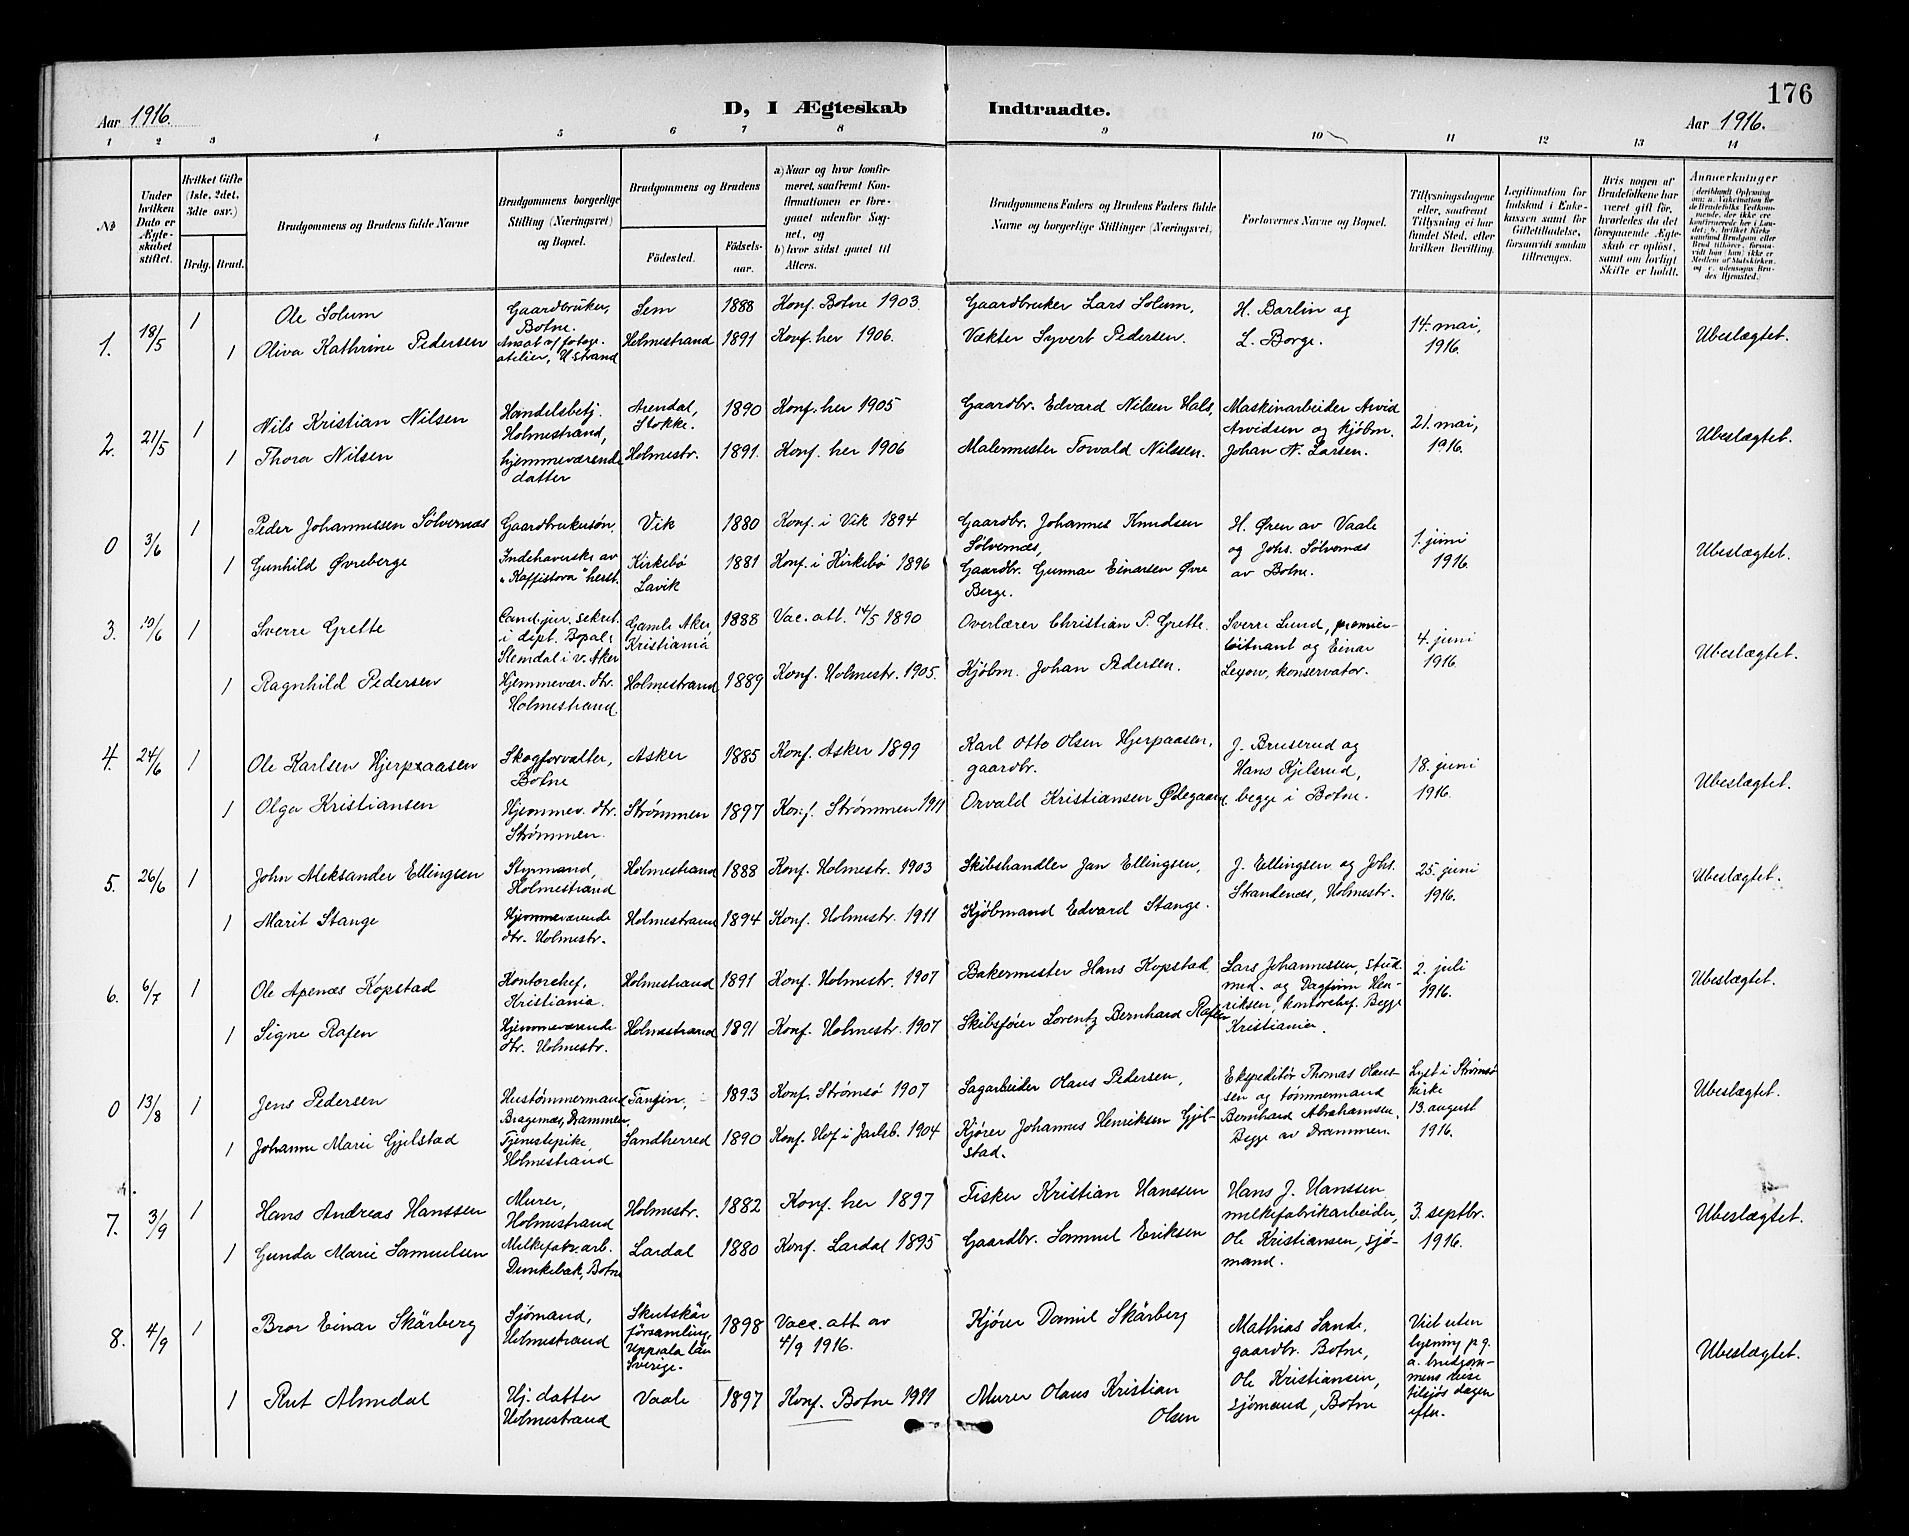 176
Aar 1916.
D, I Ægteskab
Indtraadte.
Aar 1916.
1 2 3 4 5 6 7 8 9 10 11 12 13 14
№
Under hvilken Dato er Ægteskabet stiftet.
Hvilket Gifte (1ste, 2det, 3dte osv.)
Brdg. Brud.
Brudgommens og Brudens fulde Navne
Brudgommens borgerlige Stilling (Næringsvei) og Bopæl.
Brudgommens og Brudens
Födested.
Födselsaar.
a) Naar og hvor konfirmeret, saafremt Konfirmationen er foregaaet udenfor Sognet, og
b) hvor sidst gaaet til Alters.
Brudgommens Faders og Brudens Faders fulde Navne og borgerlige Stillinger (Næringsvei)
Forlovernes Navne og Bopæl.
Tillysningsdagene eller, saafremt Tillysning ei har fundet Sted, efter hvilken Bevilling.
Legitimation for Indskud i Enkekassen samt for Giftetilladelse, forsaavidt saadan tiltrænges.
Hvis nogen af Brudefolkene har været gift før, hvorledes da det foregaaende Ægteskab er oplöst, samt om lovligt Skifte er holdt.
Anmærkninger
(deriblandt Oplysning om: a. Vakcination for de Brudefolks Vedkommende, der ikke ere konfirmerede her i Landet; b. hvilket Kirkesamfund Brudgom eller Brud tilhører, forsaavidt han (hun) ikke er Medlem af Statskirken, og c. udensogns Brudes Hjemsted).
1. 18/5 1 Ole Solum Gaardbruker, Botne. Sem 1888 Konf. Botne 1903. Gaardbruker Lars Solum, H. Barlin og L. Borge. 14. mai, 1916. Ubeslægtet.
1 Oliva Kathrine Pedersen Ansat v/ fotogr. atelier, H.strand Holmestrand 1891 Konf. her 1906. Vækter Syvert Pedersen.
2. 21/5 1 Nils Kristian Nilsen Handelsbetj. Holmestrand, Arendal, Stokke. 1890 Konf. her 1905 Gaardbr. Edvard Nilsen Hals, Maskinarbeider Arvid Arvidsen og kjøbm. Johan N. Larsen. 21. mai, 1916. Ubeslægtet.
1 Thora Nilsen hjemmeværende datter Holmestr. 1891. Konf. her 1906 Malermester Torvald Nilssen.
0 3/6 1 Peder Johannessen Sølvernæs Gaardbrukersøn, Vik 1880 Konf. i Vik 1894 Gaardbr. Johannes Knudsen Sølvernæs, H. Øren av Vaale og Johs. Sølvernæs av Botne. 1. juni 1916. Ubeslægtet.
1 Gunhild Øvreberge Indehaverske av "Kaffistova" herst. Kirkebø Lavik 1881 Konf. i Kirkebø 1896 Gaardbr. Gunnar Einarsen Øvre Berge.
3. 10/6 1 Sverre Grette Cand. jur. sekret. i dept. Bopæl: Slemdal i v. Aker Gamle Aker Kristiania 1888 Vac. att. 14/5 1890 Overlærer Christian P. Grette. Sverre Lund, premierløitnant og Einar Lexow, konservator. 4. juni 1916. Ubeslægtet.
1 Ragnhild Pedersen Hjemmevær. dtr. Holmestrand. Holmestrand 1889 Konf. Holmestr. 1905. Kjøbm. Johan Pedersen.
4. 24/6 1 Ole Karlsen Hjerpaasen Skogforvalter, Botne Asker 1885 Konf. Asker 1899 Karl Otto Olsen Hjerpaasen, gaardbr. J. Bruserud og Hans Kjelsrud, begge i Botne. 18. juni 1916. Ubeslægtet.
1 Olga Kristiansen Hjemmev. dtr. Strømmen. Strømmen 1897 Konf. Strømmen 1911 Orvald Kristiansen Ødegaard
5. 26/6 1 John Aleksander Ellingsen Styrmand, Holmestrand Holmestrand 1888 Konf. Holmestr. 1903 Skibshandler Jan Ellingsen, J. Ellingsen og Johs. Strandenæs, Holmestr. 25. juni 1916. Ubeslægtet.
1 Marit Stange Hjemmeværende dtr. Holmestr. Holmestrand 1894 Konf. Holmestr. 1911 Kjøbmand Edvard Stange.
6. 6/7 1 Ole Apenæs Kopstad Kontorchef, Kristiania. Holmestrand 1891 Konf. Holmestr. 1907 Bakermester Hans Kopstad. Lars Johannessen, stud. med. og Dagfinn Henriksen, kontorchef. Begge Kristiania. 2. juli 1916. Ubeslægtet.
1 Signe Rafen Hjemmeværende dtr. Holmestr. Holmestrand 1891 Konf. Holmestr. 1907 Skibsfører Lorentz Bernhard Rafen
0 13/8 1 Jens Pedersen Hustømmermand Bragenæs, Drammen, Tangen, 1893 Konf. Strømsø 1907 Sagarbeider Olaus Pedersen, Ekspeditør Thomas Olaussen og tømmermand Bernhard Abrahamsen, Begge av Drammen. Lyst i Strømsø kirke 13. august 1916. Ubeslægtet.
1 Johanne Marie Gjelstad Tjenestepike Holmestrand Sandherred 1890 Konf. Hof i Jarlsb. 1904 Kjører Johannes Henriksen Gjelstad.
7. 3/9 1 Hans Andreas Hanssen Murer, Holmestrand Holmestr. 1882 Konf. her 1897 Fisker Kristian Hanssen Hans J. Hanssen melkefabrikarbeider, Ole Kristiansen, sjømand. 3. septbr. 1916. Ubeslægtet.
1 Gunda Marie Samuelsen Melkefabr. arb. Dunkebak, Botne Lardal 1880 Konf. Lardal 1895 Gaardbr. Samuel Eriksen
8. 4/9 1 Bror Einar Skärberg Sjømand, Holmestrand Skutskär församling, Uppsala län Sverige. 1898 Vacc. att av 4/9 1916. Kjører Daniel Skärberg Mathias Sande, gaardbr. Botne, Ole Kristiansen, sjømand, Botne Viet uten lysning p.g.a. brudgommens reise tilsjøs dagen efter. Ubeslægtet.
1 Rut Almedal Hj. datter Holmestrand Vaale 1897 Konf. Botne 1911 Murer Olaus Kristian Olsen